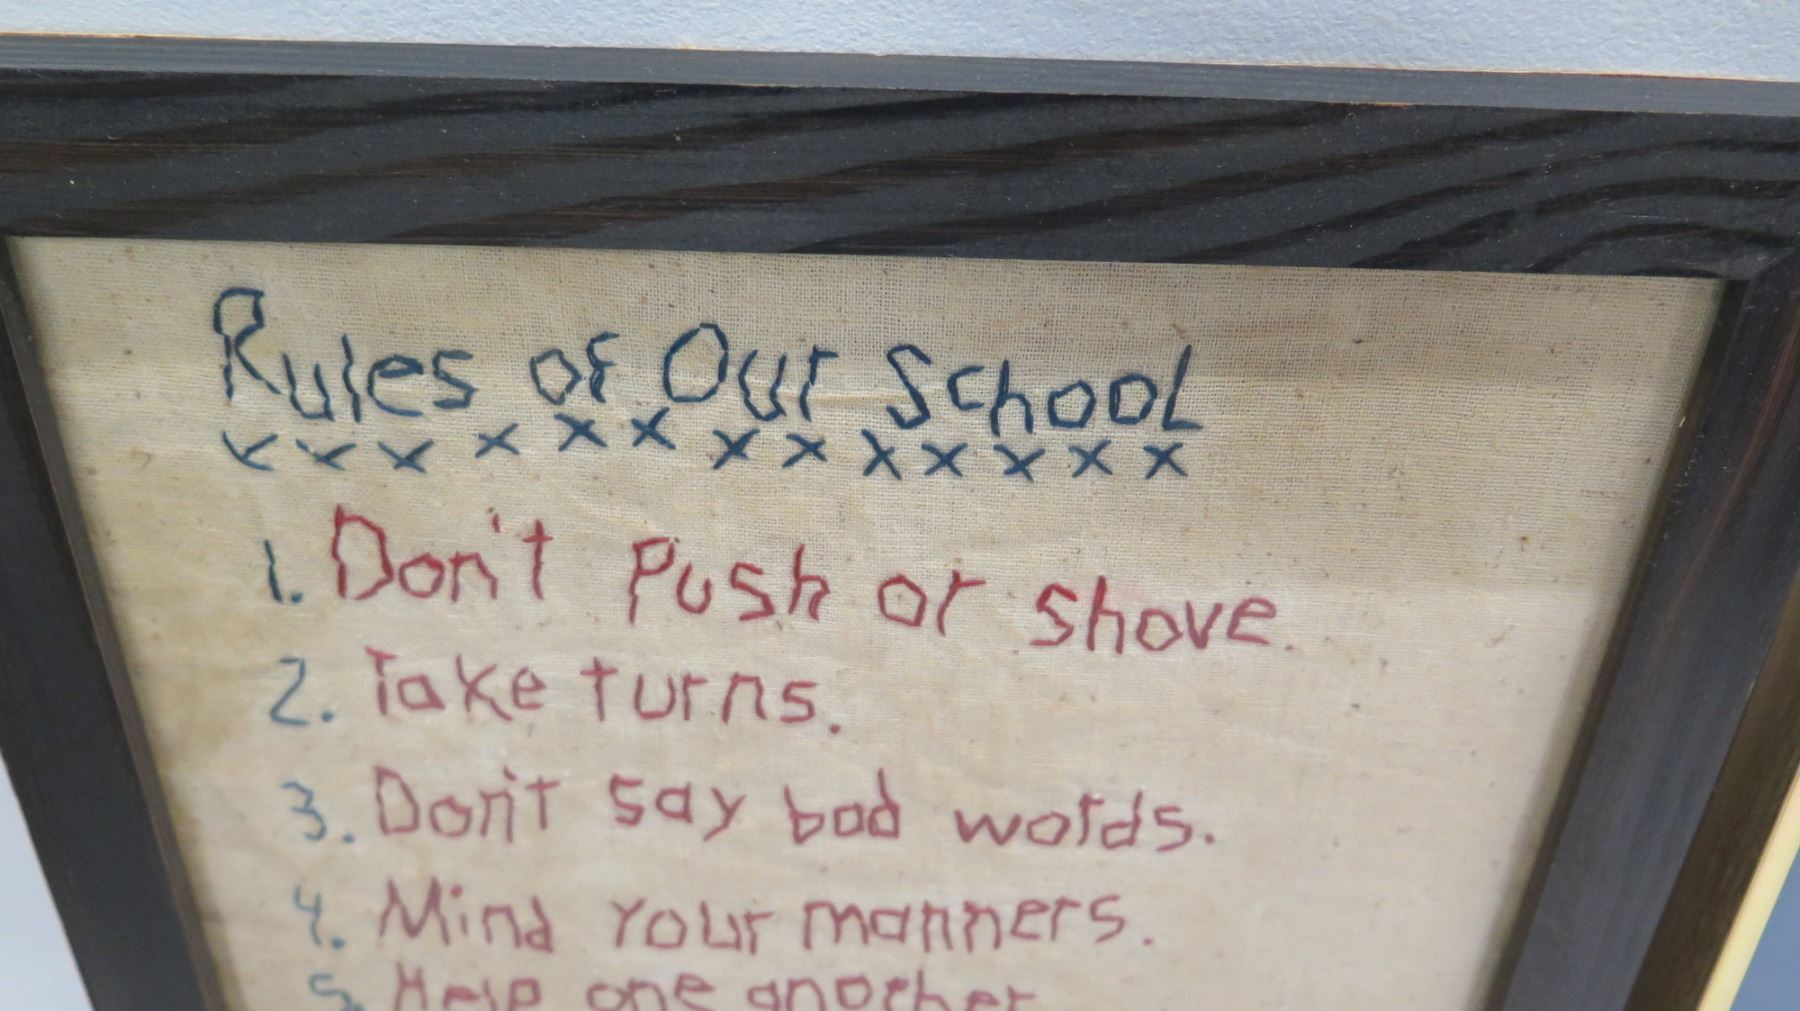 Rules of Our School
x x x x x x x x x x x x x
1. Don't Push or shove.
2. Take turns.
3. Don't say bad words.
4. Mind Your manners.
5. Help one another.